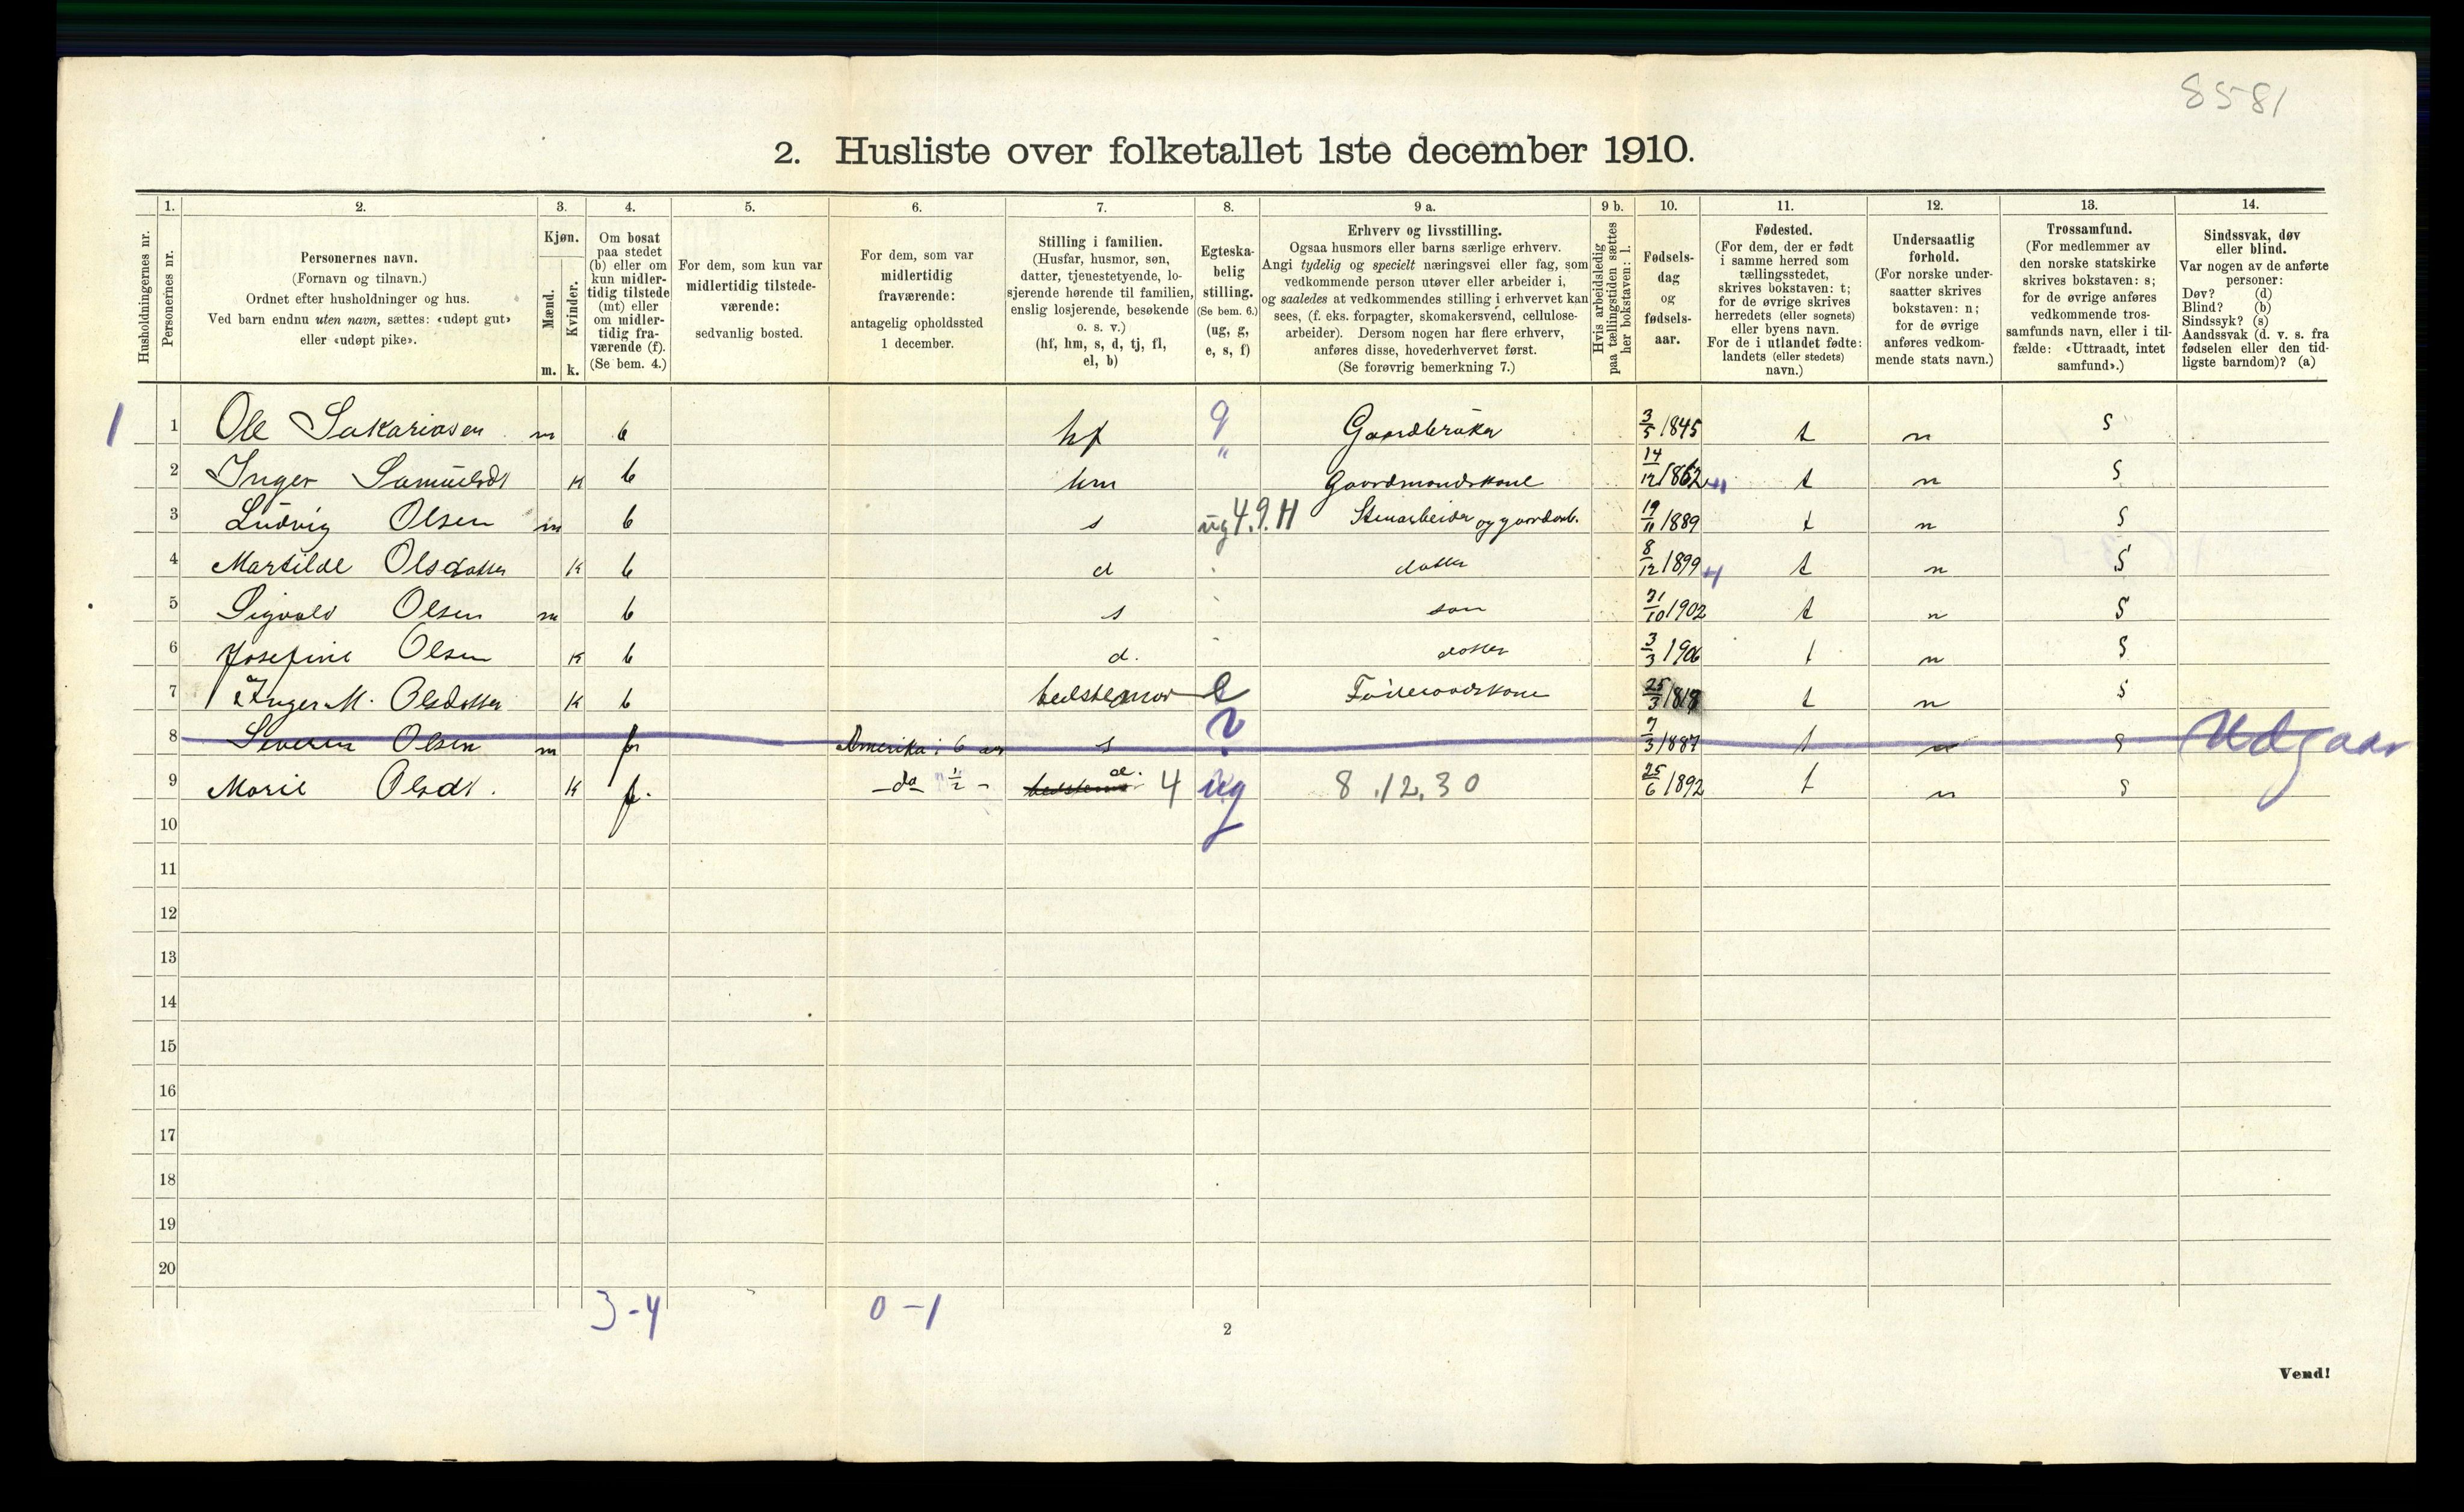 8581
2. Husliste over folketallet 1ste december 1910.
Husholdningernes nr.
1.
Personernes nr.
2.
Personernes navn.
(Fornavn og tilnavn.)
Ordnet efter husholdninger og hus.
Ved barn endnu uten navn, sættes: «udøpt gut»
eller «udøpt pike».
3.
Kjøn.
Mænd.
Kvinder.
m. k.
4.
Om bosat
paa stedet
(b) eller om
kun midler-
tidig tilstede
(mt) eller
om midler-
tidig fra-
værende (f).
(Se bem. 4.)
5.
For dem, som kun var
midlertidig tilstede-
værende:
sedvanlig bosted.
6.
For dem, som var
midlertidig
fraværende:
antagelig opholdssted
1 december.
7.
Stilling i familien.
(Husfar, husmor, søn,
datter, tjenestetyende, lo-
sjerende hørende til familien,
enslig losjerende, besøkende
o. s. v.)
(hf, hm, s, d, tj, fl,
el, b)
8.
Egteska-
belig
stilling.
(Se bem. 6.)
(ug, g,
e, s, f)
9 a.
Erhverv og livsstilling.
Ogsaa husmors eller barns særlige erhverv.
Angi tydelig og specielt næringsvei eller fag, som
vedkommende person utøver eller arbeider i,
og saaledes at vedkommendes stilling i erhvervet kan
sees, (f. eks. forpagter, skomakersvend, cellulose-
arbeider). Dersom nogen har flere erhverv,
anføres disse, hovederhvervet først.
(Se forøvrig bemerkning 7.)
9 b.
Hvis arbeidsledig
paa tællingstiden sættes
her bokstaven: l.
10.
Fødsels-
dag
og
fødsels-
aar.
11.
Fødested.
(For dem, der er født
i samme herred som
tællingsstedet,
skrives bokstaven: t;
for de øvrige skrives
herredets (eller sognets)
eller byens navn.
For de i utlandet fødte:
landets (eller stedets)
navn.)
12.
Undersaatlig
forhold.
(For norske under-
saatter skrives
bokstaven: n;
for de øvrige
anføres vedkom-
mende stats navn.)
13.
Trossamfund.
(For medlemmer av
den norske statskirke
skrives bokstaven: s;
for de øvrige anføres
vedkommende tros-
samfunds navn, eller i til-
fælde: «Uttraadt, intet
samfund».)
14.
Sindssvak, døv
eller blind.
Var nogen av de anførte
personer:
Døv? (d)
Blind? (b)
Sindssyk? (s)
Aandssvak (d. v. s. fra
fødselen eller den tid-
ligste barndom)? (a)
1 1 Ole Sakariasen m b hf g Gaardbruker 3/5 1845 t n s
2 Inger Samuelsdt k b hm " Gaardmandskone 14/12 1862 t n s
3 Ludvig Olsen m b s ug 4.9.H Stenarbeider og gaardarb. 19/11 1889 t n s
4 Martilde Olsdatter k b d datter 8/12 1899 t n s
5 Sigvald Olsen m b s søn 31/10 1902 t n s
6 Josefine Olsen k b d. datter 3/3 1906 t n s
7 Inger M. Olsdatter k b bedstemor e 25/3 1818 t n s
8 Severin Olsen m f Amerika i 6 aar s ? 7/3 1887 t n s Udgaar
9 Marie Olsdt. k f. - da " 1/2 - d. 4 ug 8.12.30 25/6 1892 t n s
10
11
12
13
14
15
16
17
18
19
20
3-4 0-1
2
Vend!